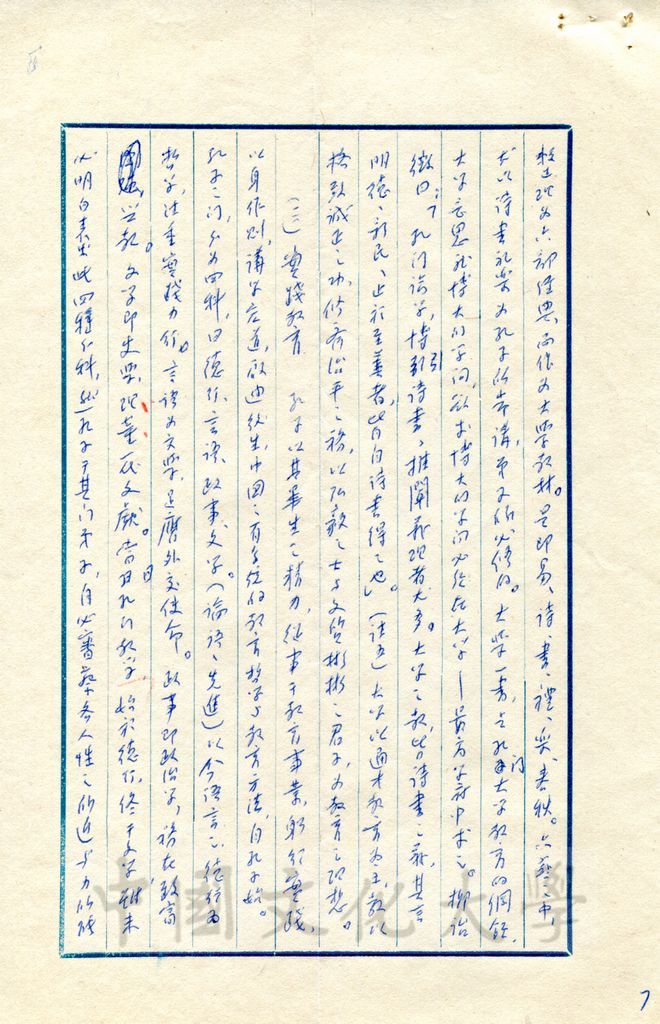 整理為六部經典,而作為大學教材。是即易、詩、書、禮、樂、春秋。六藝之中,
尤以詩書禮樂為孔子所常講,弟子所必修的。大學一書,是孔門大學教育的綱領,
大學意思就博大的學問,欲求博大的學問必於在大學——最高學府中求之。柳詒
徵曰:「孔門論學,博引詩書、推闡義理者尤多。大學之教,皆詩書之教,其言
明德、新民、止於至善者,皆自詩書得之也」。(註五)大學以通才教育為主,教以
格致誠正之功,修齊治平之務,以弘毅之士與文質彬彬之君子,為教育之理想。
(三)實踐教育 孔子以其畢生之精力,從事于教育事業,躬行實踐,
以身作則,講學莊道,啟迪後生,中國之有系統的教育哲學與教育方法,自孔子始。
孔子之門,分為四科,曰德行、言語、政事、文學。(論語、先進)以今語言之,德行為
哲學,注重實踐力行。言語為文學,足膺外交使命。政事即政治學,務在致富
興教。文學即史學,理董一代文獻。當日孔門教學,始於德行,終于文學,雖未
必明白表出此四種分科,然孔子于其門弟子,自必審察各人性之所近與力所能
7
中國文化大學